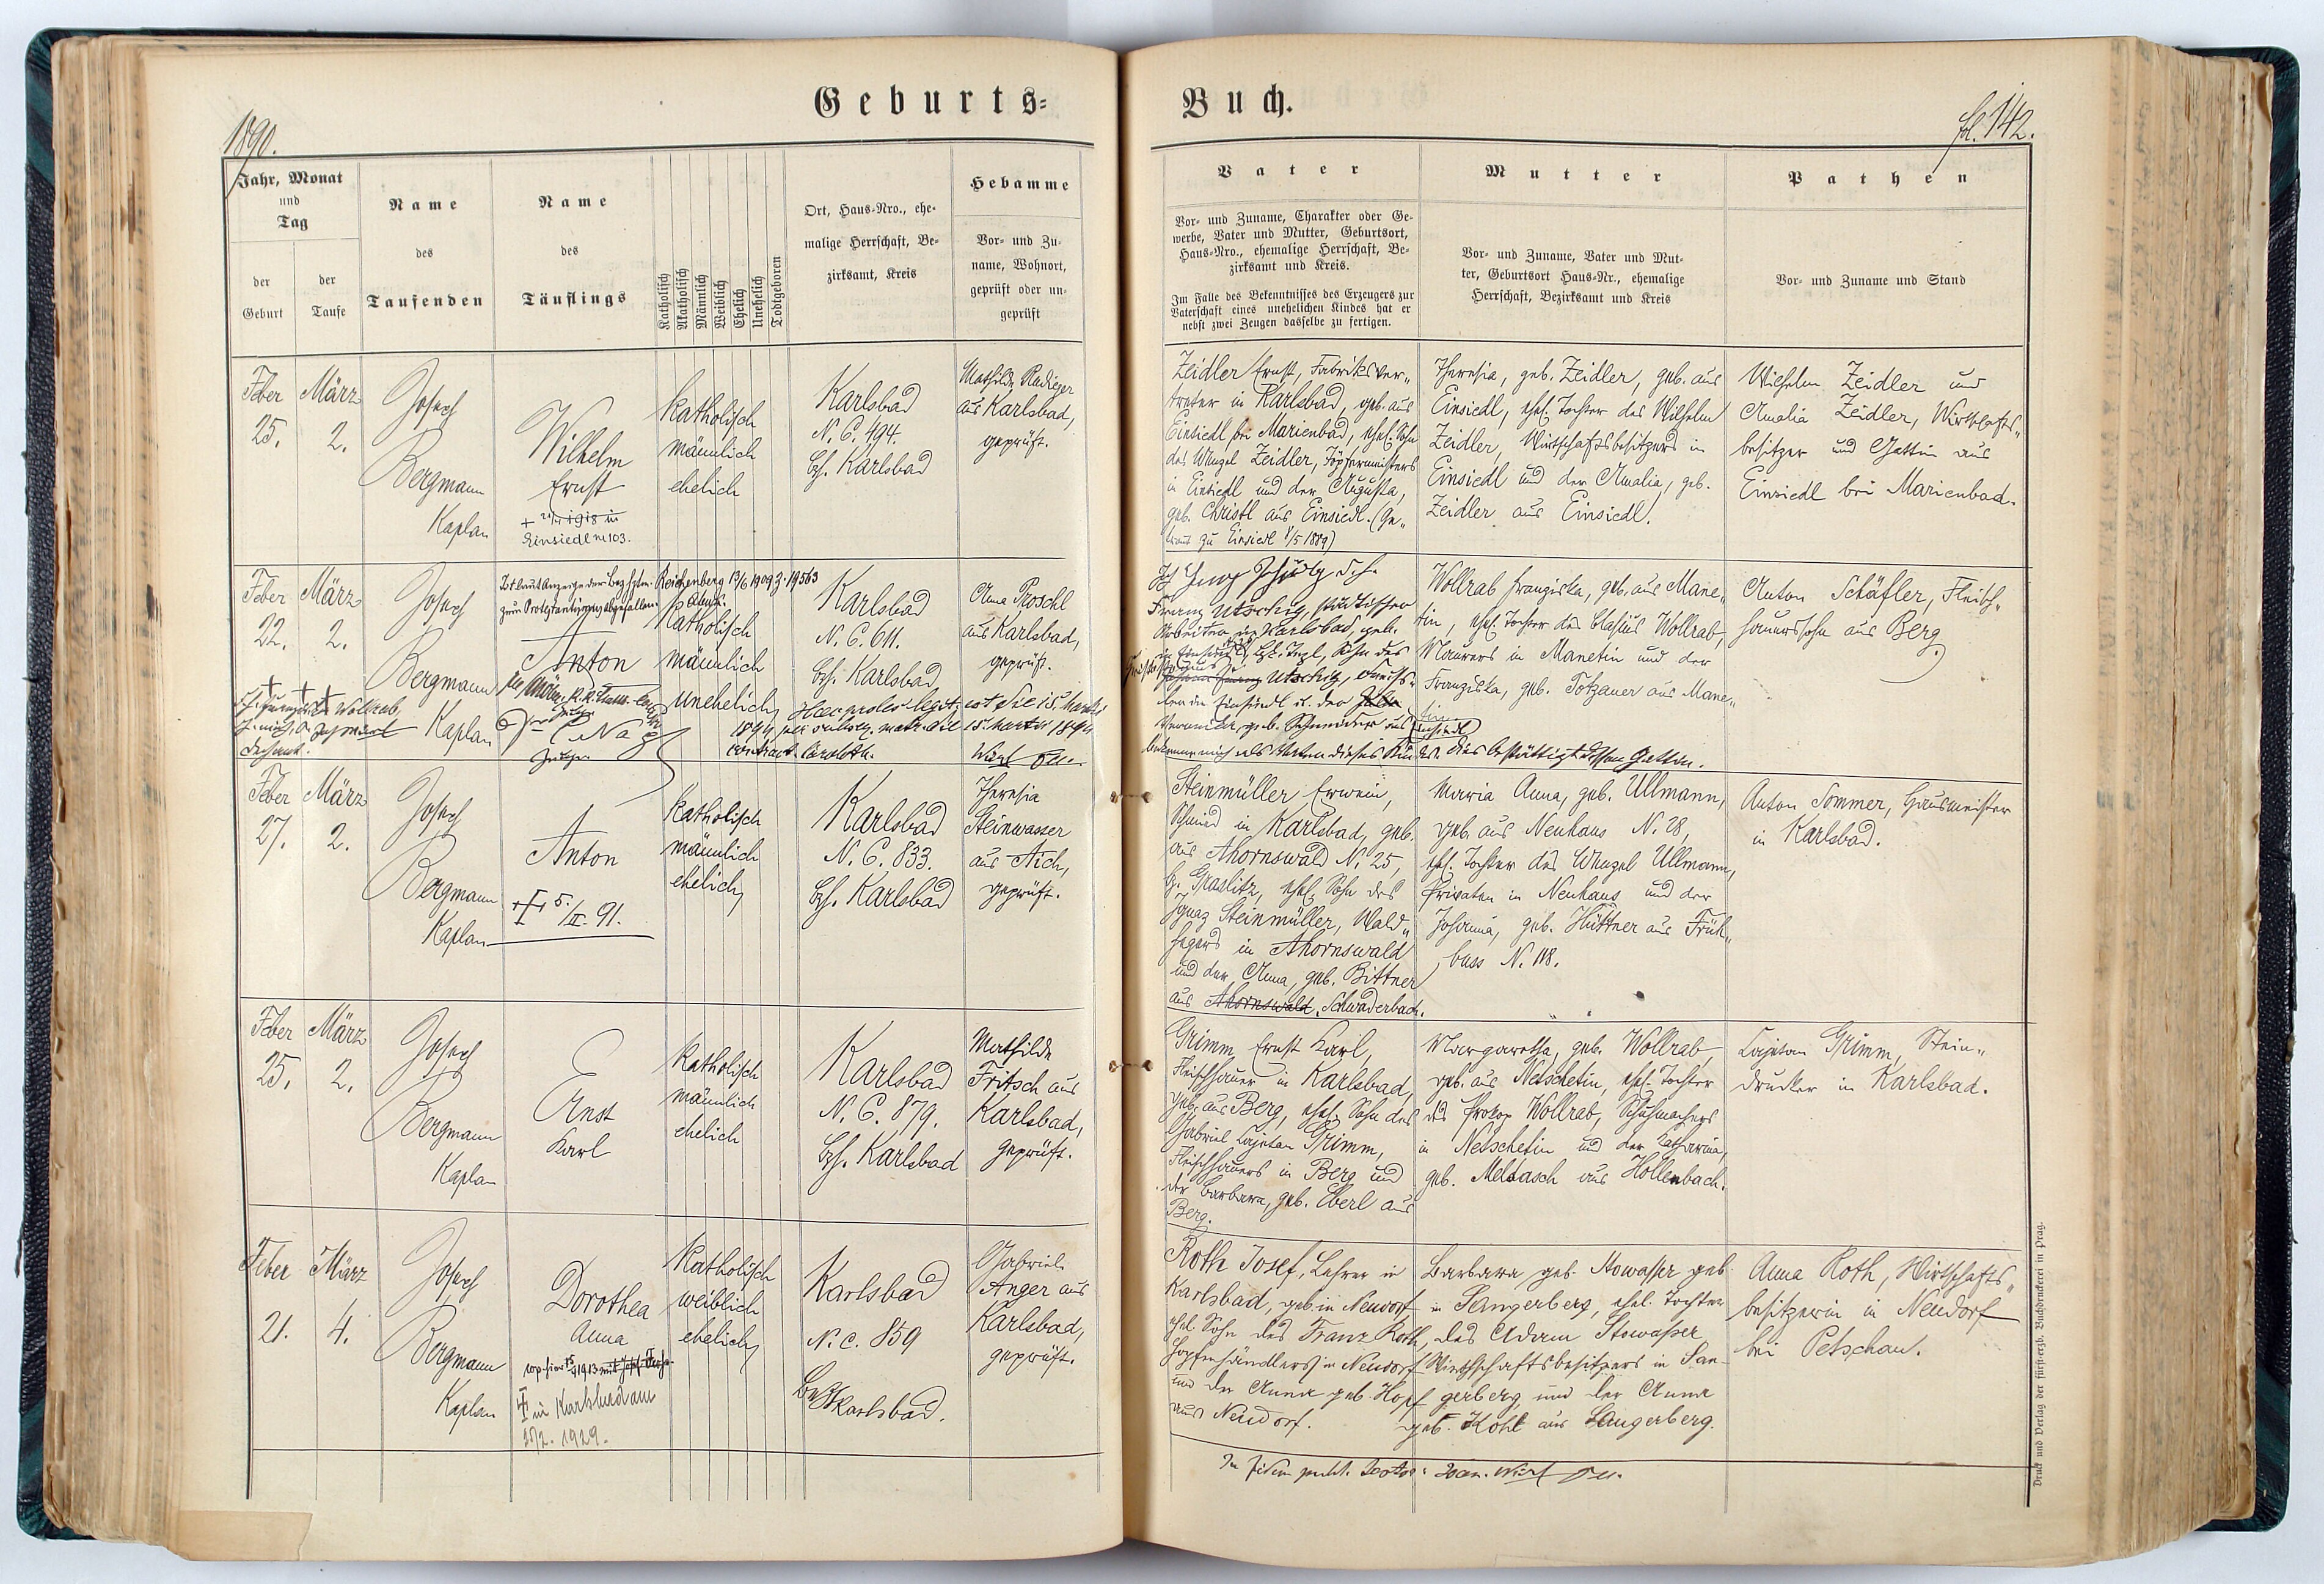 Geburts=
Buch.
1890.
fol. 142.
Jahr, Monat
und
Tag
der
Geburt
der
Taufe
Name
des
Taufenden
Name
des
Täuflings
Katholisch
Akatholisch
Männlich
Weiblich
Ehelich
Unehelich
Todtgeboren
Ort, Haus-Nro., ehe-
malige Herrschaft, Be-
zirksamt, Kreis
Hebamme
Vor- und Zu-
name, Wohnort,
geprüft oder un-
geprüft
Vater
Vor- und Zuname, Charakter oder Ge-
werbe, Vater und Mutter, Geburtsort,
Haus-Nro., ehemalige Herrschaft, Be-
zirksamt und Kreis.
Im Falle des Bekenntnisses des Erzeugers zur
Vaterschaft eines unehelichen Kindes hat er
nebst zwei Zeugen dasselbe zu fertigen.
Mutter
Vor- und Zuname, Vater und Mut-
ter, Geburtsort Haus-Nr., ehemalige
Herrschaft, Bezirksamt und Kreis
Pathen
Vor- und Zuname und Stand
Feber
25.
März
2.
Josef
Bergmann
Kaplan
Wilhelm
Ernst
1918 in
Einsiedl № 103.
katholisch
männlich
ehelich
Karlsbad
N. C. 494.
Bzh. Karlsbad
Mathilde Rudieger
aus Karlsbad,
geprüft.
Zeidler Ernst, Fabriksver„
treter in Karlsbad, geb. aus
Einsiedl bei Marienbad, ehel. Sohn
des Wenzel Zeidler, Töpfermeisters
in Einsiedl und der Augusta,
geb. Christl aus Einsiedl. (Ge„
traut zu Einsiedl 1/5 1889)
Theresia, geb. Zeidler, geb. aus
Einsiedl, ehel. Tochter des Wilhelm
Zeidler, Wirtschaftsbesitzers in
Einsiedl und der Amalia, geb.
Zeidler aus Einsiedl.
Wilhelm Zeidler und
Amalia Zeidler, Wirtschafts„
besitzer und Gattin aus
Einsiedl bei Marienbad.
Feber
22.
März
2.
Josef
Bergmann
Kaplan
Ist laut Anzeige der Bez. Reichenberg 13/6 1909 Z. 19563
zum Protestantismus abgefallen.
Anton
katholisch
männlich
unehelich
Karlsbad
N. C. 611.
Bzh. Karlsbad
Anna Proschl
aus Karlsbad,
geprüft.
Wollrab,
Hic proles legit. est die 15. Martii
1894 per subseq. matr. die 15. Martii 1894
contract. Caroloth.
Franz Utschig, städtischer
Arbeiter in Karlsbad, geb.
Utschig,
Veronika, geb. Schneider aus Einsiedl
bekenne mich als Vater dieses Kin des. Dies bestättigt dessen Gattin.
Wollrab Franziska, geb. aus Mane„
tin, ehel. Tochter des Blasius Wollrab,
Maurers in Manetin und der
Franziska, geb. Totzauer aus Mane„
tin.
Anton Schäfler, Fleisch„
hauerssohn aus Berg
Feber
27.
März
2.
Josef
Bergmann
Kaplan
Anton
5./II. 91.
katholisch
männlich
ehelich
Karlsbad
N. C. 833.
Bzh. Karlsbad
Theresia
Steinwasser
aus Aich,
geprüft.
Steinmüller Erwein,
Schmied in Karlsbad, geb.
aus Ahornswald N. 25,
Bz. Graslitz, ehel. Sohn des
Ignaz Steinmüller, Wald„
hegers in Ahornswald
und der Anna, geb. Bittner
aus Ahornswald. Schwaderbach.
Maria Anna, geb. Ullmann,
geb. aus Neuhaus N. 28,
ehel. Tochter des Wenzel Ullmann,
Privaten in Neuhaus und der
Johanna, geb. Hüttner aus Früh„
buss N. 118.
Anton Sommer, Hausmeister
in Karlsbad.
Feber
25.
März
2.
Josef
Bergmann
Kaplan
Ernst
Karl
katholisch
männlich
ehelich
Karlsbad
N. C. 879.
Bzh. Karlsbad
Mathilde
Fritsch aus
Karlsbad,
geprüft.
Grimm Ernst Karl,
Fleischhauer in Karlsbad,
geb. aus Berg, ehel. Sohn des
Gabriel Cajetan Grimm,
Fleischhauers in Berg und
der Barbara, geb. Eberl aus
Berg.
Margaretha, geb. Wollrab,
geb. aus Netschetin, ehel. Tochter
des Prokop Wollrab, Schuhmachers
in Netschetin und der Katharina,
geb. Meldasch aus Hollenbach.
Cajetan Grimm, Stein„
drucker in Karlsbad.
Feber
21.
März
4.
Josef
Bergmann
Kaplan
Dorothea
Anna
in Karlsbad am
1929.
katholisch
weiblich
ehelich
Karlsbad
N. C. 859
Bzh Karlsbad.
Gabriele
Anger aus
Karlsbad,
geprüft.
Roth Josef, Lehrer in
Karlsbad, geb. in Neudorf
ehel. Sohn des Franz Roth,
Hopfenhändlers in Neudorf
und der Anna geb. Hopf
aus Neudorf.
Barbara geb. Stowasser geb.
in Sangerberg, ehel. Tochter
des Adam Stowasser
Wirthschaftsbesitzers in San-
gerberg, und der Anna
geb. Kohl aus Sangerberg.
Anna Roth, Wirtschafts„
besitzerin in Neudorf
bei Petschau.
Druck und Verlag der fürst-erzb. Buchdruckerei in Prag.